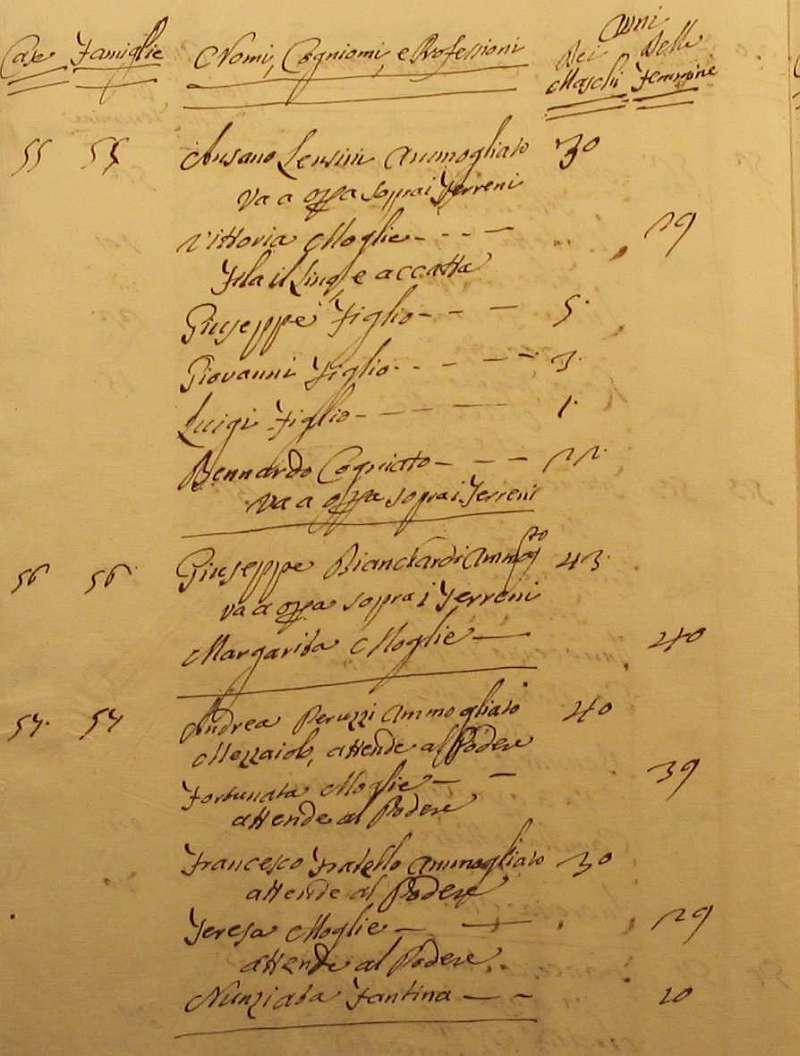 Case Famiglie Nomi, Cogniomi, e Professioni Anni
Dei Maschi Delle Femmine
55 55 Ansano Lensini Ammogliato 30
Va a opra sopra i Terreni
Vittoria Moglie - - - - 29
Fila il Lino, e accatta
Giuseppe Figlio - - - 5.
Giovanni Figlio - - - - 3.
Luigi Figlio - - - - 1.
Bennardo Cogniato - - - 22.
Va a opra sopra i Terreni
56 56 Giuseppe Bianciardi Ammogto 43.
va a opra sopra i Terreni
Margarita Moglie - 40
57. 57 Andrea Peruzzi Ammogliato 40
Mezzaiolo, attende al Podere
Fortunata Moglie - - 39
attende al Podere
Francesco Fratello Ammogliato 30
attende al Podere
Teresa Moglie - - - 29
attende al Podere
Nunziata Fantina - - 20